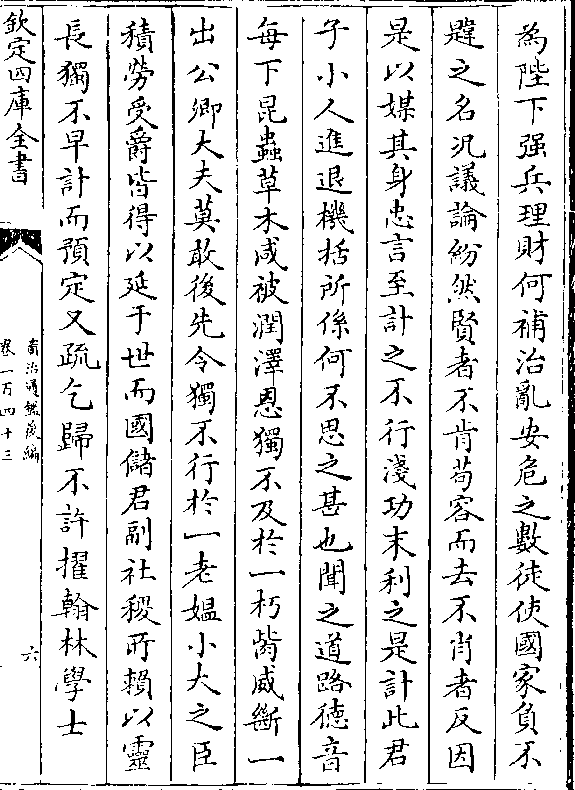 為陛下强兵理財何補治亂安危之數徒使國家負不
韙之名况議論紛然賢者不肯苟容而去不肖者反因
是以媒其身忠言至計之不行淺功末利之是計此君
子小人進退機括所係何不思之甚也聞之道路德音
每下昆蟲草木咸被潤澤恩獨不及於一朽胔威斷一
出公卿大夫莫敢後先令獨不行於一老媼小大之臣
積勞受爵皆得以延于世而國儲君副社稷所賴以靈
長獨不早計而預定又疏乞歸不許擢翰林學士
欽定四庫全書
資治通鑑後編
卷一百四十三
六